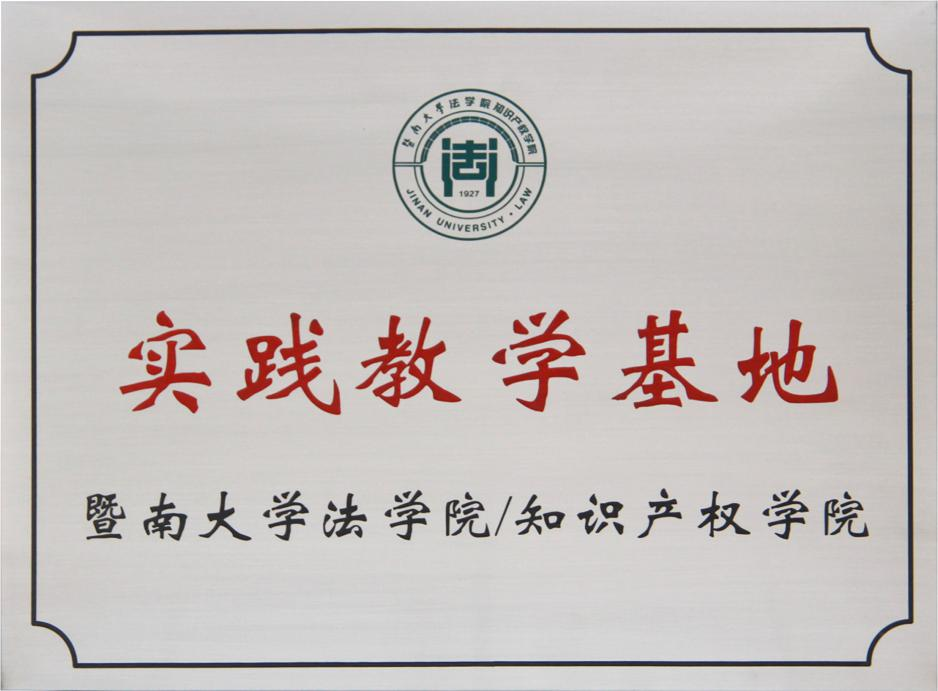 暨南大学法学院 知识产权学院
法
1927
JINAN UNIVERSITY · LAW
实践教学基地
暨南大学法学院/知识产权学院